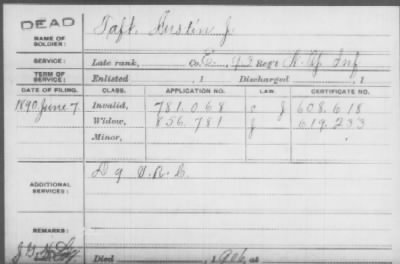 DEAD
Taft, Austin J
NAME OF SOLDIER:
SERVICE: Late rank, Co. E, 93 Reg't N.Y. Inf
TERM OF SERVICE: Enlisted , 1 Discharged , 1
DATE OF FILING. CLASS. APPLICATION NO. LAW. CERTIFICATE NO.
1890 June 7 Invalid, 781.068 J 608.618
Widow, 856.781 J 619.233
Minor,
ADDITIONAL SERVICES: D 9 V.R.C.
REMARKS:
Died , 1906, at